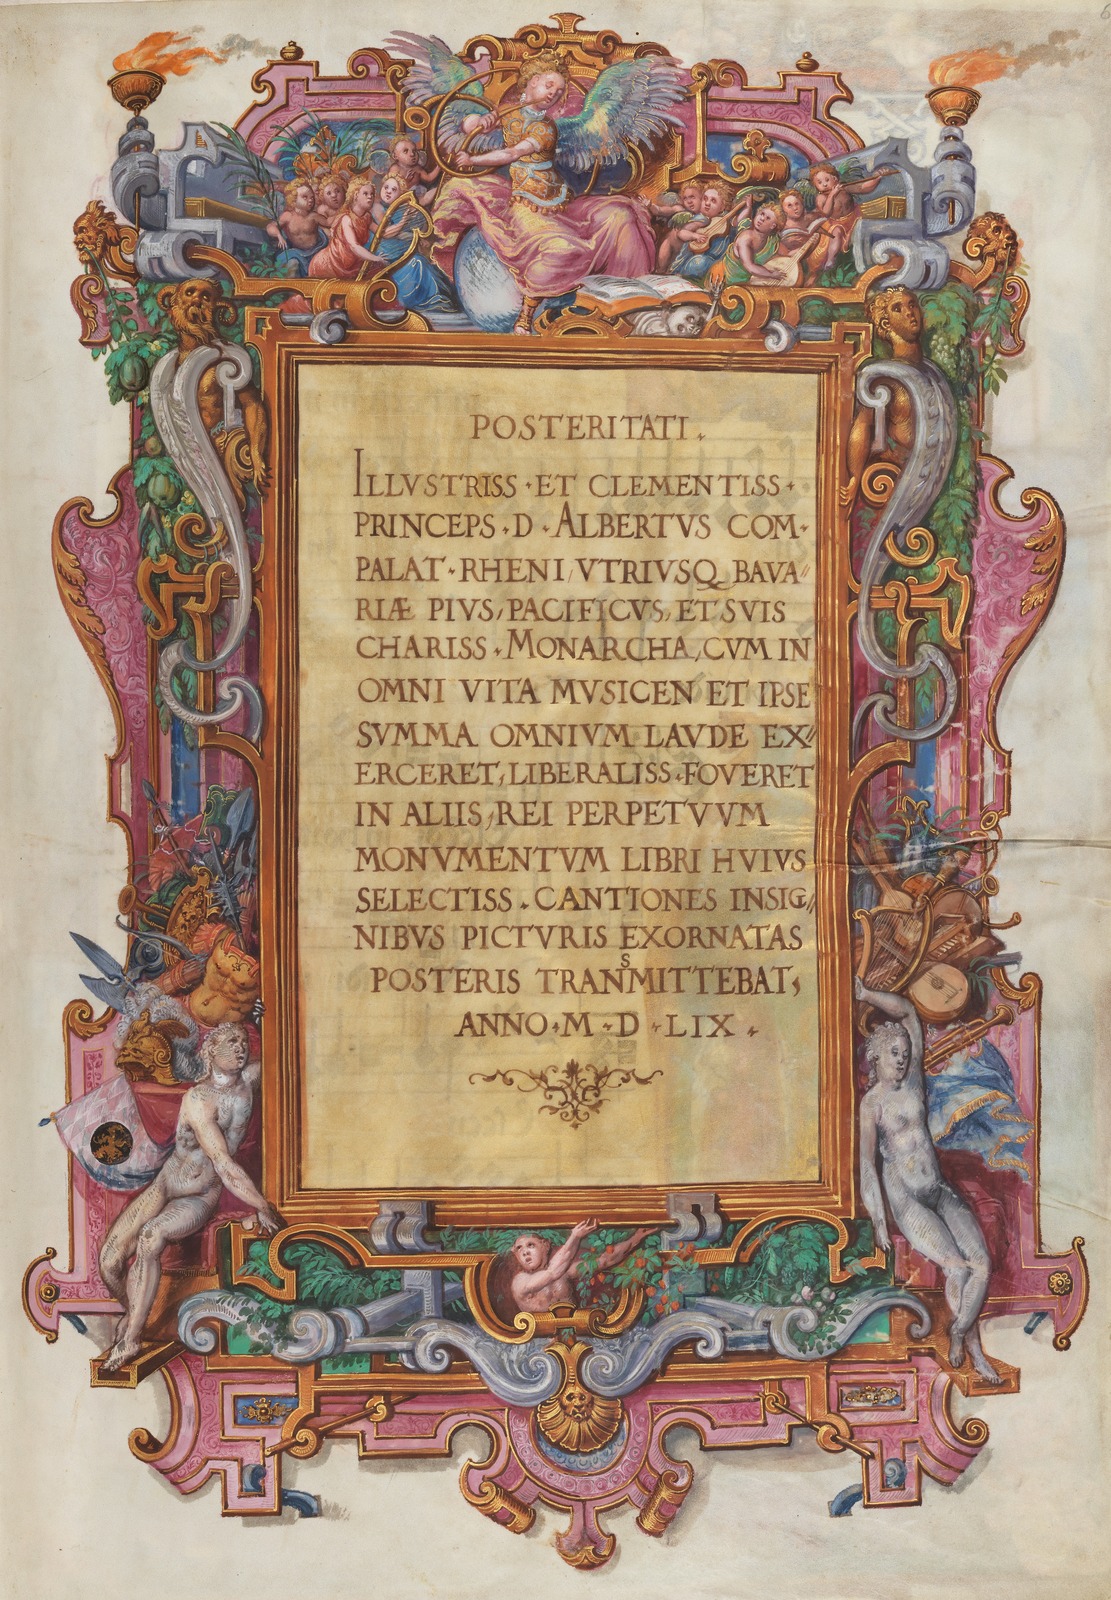 POSTERITATI.
ILLVSTRISS · ET CLEMENTISS ·
PRINCEPS · D · ALBERTVS COM·
PALAT · RHENI, VTRIVSQ BAVA//
RIÆ PIVS, PACIFICVS, ET SVIS
CHARISS · MONARCHA, CVM IN
OMNI VITA MVSICEN ET IPSE
SVMMA OMNIVM LAVDE EX//
ERCERET, LIBERALISS · FOVERET
IN ALIIS, REI PERPETVVM
MONVMENTVM LIBRI HVIVS
SELECTISS · CANTIONES INSIG//
NIBVS PICTVRIS EXORNATAS
POSTERIS TRANSMITTEBAT,
ANNO · M · D · LIX ·